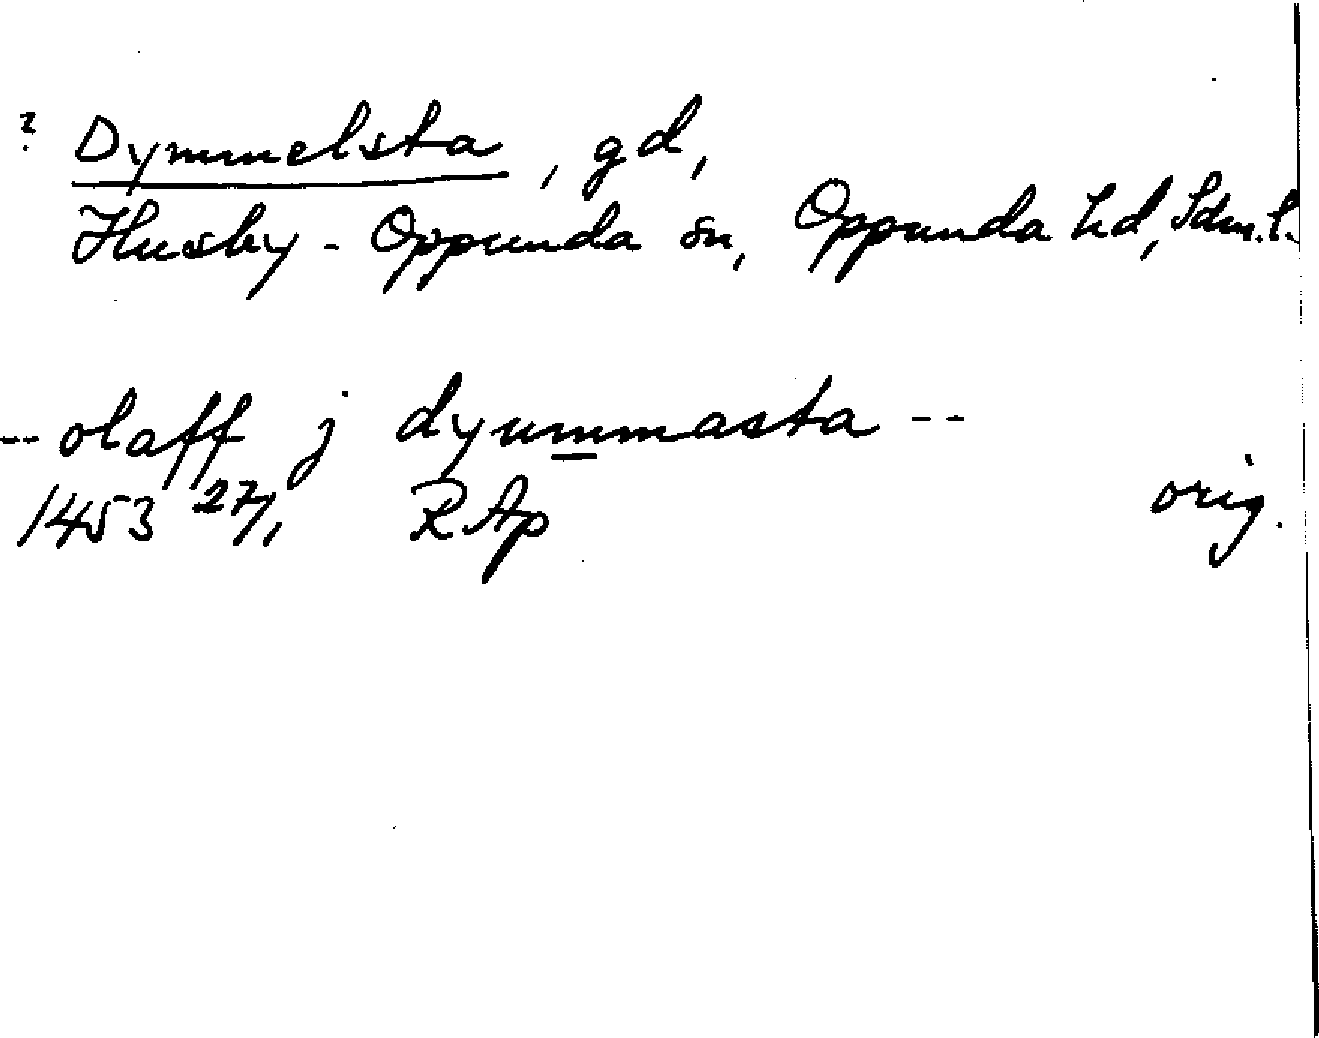 ? Dymmelsta, gd,
Husby-Oppunda sn, Oppunda hd, Sdm.l.
-- olaff j dymmmasta --
1453 27/1 RAp orig.